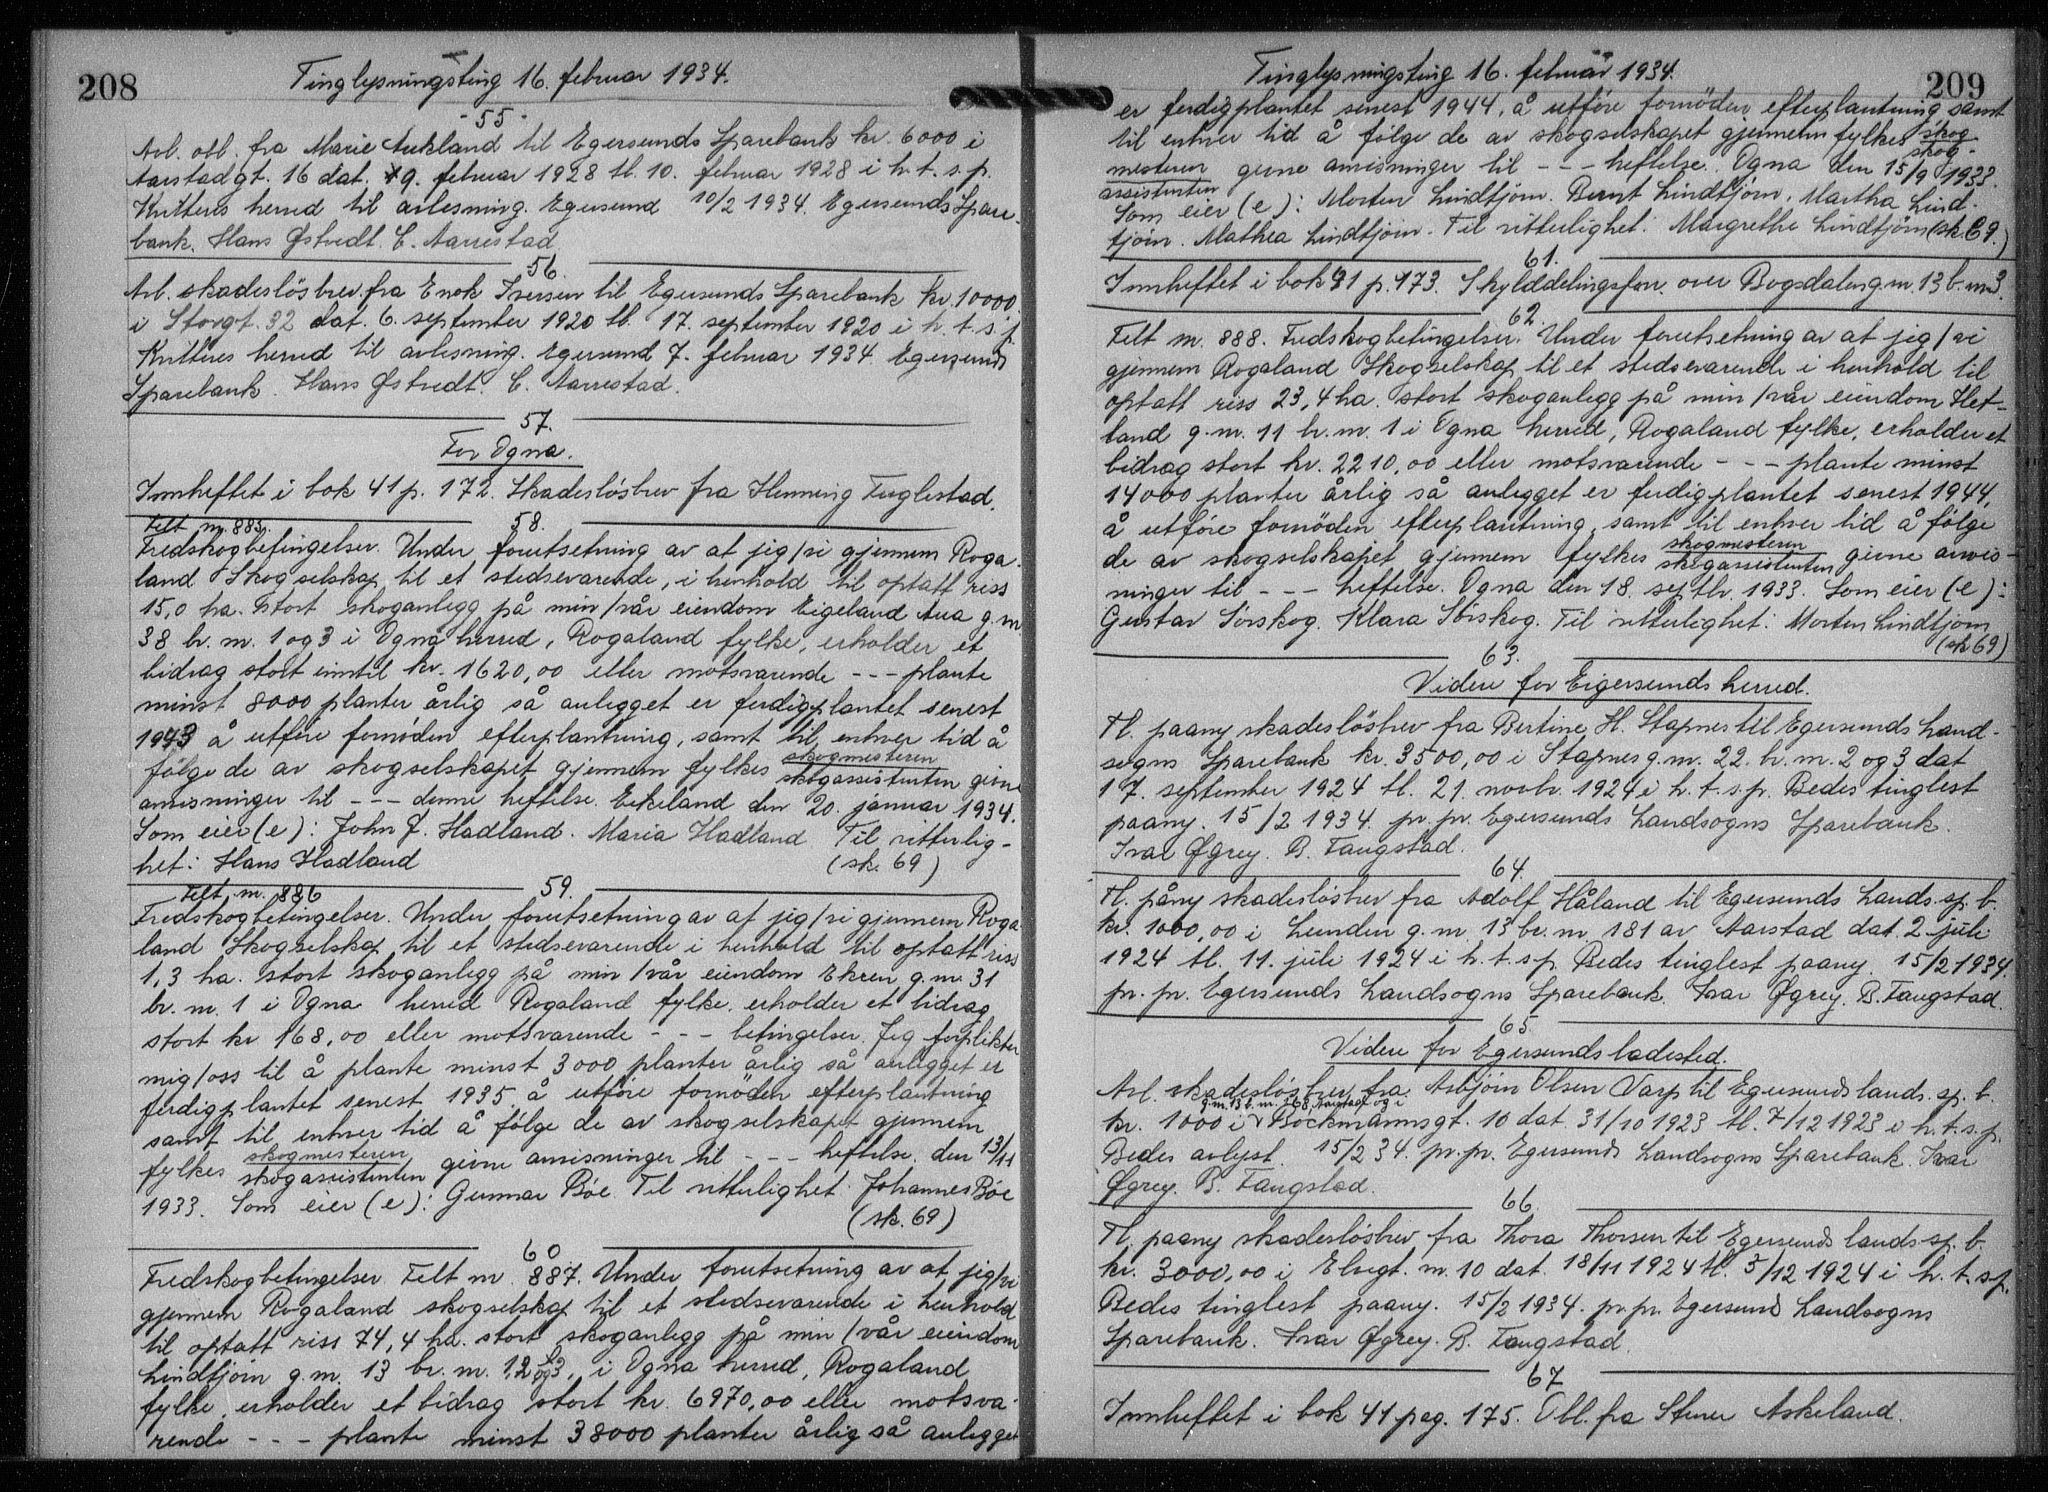 208
Tinglysningsting 16. februar 1934.
- 55 -
Avl. obl. fra Marie Aukland til Egersunds Sparebank kr. 6000 i
Aarstadgt. 16 dat. 9. februar 1928 tl. 10. februar 1928 i h. t. s. p.
Kvitteres herved til avlesning. Egersund 10/2 1934. Egersunds Spare-
bank. Hans Østvedt. C. Aarrestad
56.
Avl. skadeslösbrev fra Enok Iversen til Egersunds Sparebank kr. 10000
i Storgt. 32 dat. 6. september 1920 tl. 17. september 1920 i h. t. s. p.
Kvitteres herved til avlesning. Egersund 7. februar 1934. Egersunds
Sparebank. Hans Østvedt. C. Aarrestad.
57.
For Ogna.
Innheftet i bok 41 p. 172. Skadeslösbrev fra Henning Fuglestad.
58.
Felt nr. 885.
Fredskogbetingelser. Under forutsetning av at jeg/vi gjennem Roga-
land Skogselskap til et stedsevarende, i henhold til optatt riss
15,0 ha. stort skoganlegg på min/vår eiendom Eigeland Aua g.nr.
38 br. nr. 1 og 3 i Ogna herred, Rogaland fylke, erholder et
bidrag stort inntil kr. 1620,00 eller motsvarende - - - plante
minst 8000 planter årlig så anlegget er ferdigplantet senest
1943 å utføre fornøden efterplantning, samt til enhver tid å
følge de av skogselskapet gjennem fylkes skogmesteren
skogassistenten givne
anvisninger til - - - denne heftelse. Eikeland den 20. januar 1934.
Som eier (e): John J. Hadland. Maria Hadland Til vitterlig-
het: Hans Hadland (sk. 69)
59.
Felt nr. 886
Fredskogbetingelser. Under forutsetning av at jeg/vi gjennem Roga-
land Skogselskap til et stedsevarende i henhold til optatt riss
1,3 ha. stort skoganlegg på min/vår eiendom Ekren g. nr. 31
br. nr. 1 i Ogna herred Rogaland fylke, erholder et bidrag
stort kr 168,00 eller motsvarende - - - betingelser. Jeg forplikter
mig/oss til å plante minst 3000 planter årlig så anlegget er
ferdigplantet senest 1935 å utføre fornöden efterplantning
samt til enhver tid å følge de av skogselskapet gjennem
fylkes skogmesteren
skogassistenten givne anvisninger til - - - heftelse. den 13/11
1933. Som eier (e): Gunnar Böe. Til vitterlighet: Johannes Böe
(sk. 69)
60
Fredskogbetingelser Felt nr. 887. Under forutsetning av at jeg/vi
gjennem Rogaland skogselskap til et stedsevarende i henhold
til optatt riss 74,4 ha. stort skoganlegg på min/vår eiendom
Lindtjörn g. nr. 13 br. nr. 1,2 og 3, i Ogna herred, Rogaland
fylke, erholder et bidrag stort kr. 6970,00 eller motsva-
rende - - - plante minst 38000 planter årlig så anlegget
209
Tinglysningsting 16. februar 1934.
er ferdigplantet senest 1944, å utföre fornöden efterplantning samt
til enhver tid å følge de av skogselskapet gjennem fylkes skog-
skog-
mesteren
assistenten givne anvisninger til - - - heftelse. Ogna den 15/9 1933.
Som eier (e): Morten Lindtjörn. Bernt Lindtjörn. Martha Lind-
tjörn. Mathea Lindtjörn. Til vitterlighet: Margrethe Lindtjörn (sk. 69.)
61.
Innheftet i bok 41 p. 173. Skylddelingsforr. over Bogsdalen g.nr. 13 b. nr. 3.
62.
Felt nr. 888. Fredskogbetingelser. Under forutsetning av at jeg/vi
gjennem Rogaland Skogselskap til et stedsevarende i henhold til
optatt riss 23,4 ha. stort skoganlegg på min/vår eiendom Het-
land g. nr. 11 br. nr. 1 i Ogna herred, Rogaland fylke, erholder et
bidrag stort kr. 2210,00 eller motsvarende - - - plante minst
14000 planter årlig så anlegget er ferdigplantet senest 1944,
å utføre fornöden efterplantning, samt til enhver tid å følge
de av skogselskapet gjennem fylkes skogmesteren
skogassistenten givne anvis-
ninger til - - - heftelse. Ogna den 18. septbr. 1933. Som eier (e):
Gustav Sörskog. Klara Sörskog. Til vitterlighet: Morten Lindtjörn
(sk 69)
63.
Videre for Eigersunds herred.
Tl. paany skadeslösbrev fra Bertine H. Stapnes til Egersunds Land-
sogns Sparebank kr. 3500,00 i Stapnes g. nr. 22. br. nr. 2 og 3 dat
17. september 1924 tl. 21. novbr. 1924 i h. t. s. p. Bedes tinglest
paany. 15/2 1934. pr. pr. Egersunds Landsogns Sparebank.
Ivar Øgrey. B. Taugstad.
64.
Tl. påny skadeslösbrev fra Adolf Håland til Egersunds Lands. sp. b.
kr. 1000,00 i Lunden g. nr. 13 br. nr. 181 av Aarstad dat. 2 juli
1924 tl. 11. juli 1924 i h. t. s. p. Bedes tinglest paany. 15/2 1934.
pr. pr. Egersunds Landsogns Sparebank. Ivar Øgrey. B. Taugstad.
65.
Videre for Egersunds ladested.
Avl. skadeslösbrev fra Asbjörn Olsen Varp til Egersunds lands. sp. b.
g. nr. 13 b. nr. 268 Aarstad og i
kr. 1000 i Böckmannsgt. 10 dat. 31/10 1923 tl. 7/12 1923 i h. t. s. p.
Bedes avlyst. 15/2 34. pr. pr. Egersunds Landsogns Sparebank. Ivar
Øgrey. B. Taugstad.
66.
Tl. paany skadeslösbrev fra Thora Thorsen til Egersunds lands. sp. b.
kr. 3000,00 i Elvegt. nr. 10 dat. 18/11 1924 tl. 5/12 1924 i h. t. s. p.
Bedes tinglest paany. 15/2 1934. pr. pr. Egersund Landsogns
Sparebank. Ivar Øgrey. B. Taugstad.
67
Innheftet i bok 41 pag. 175. Obl. fra Stener Askeland.